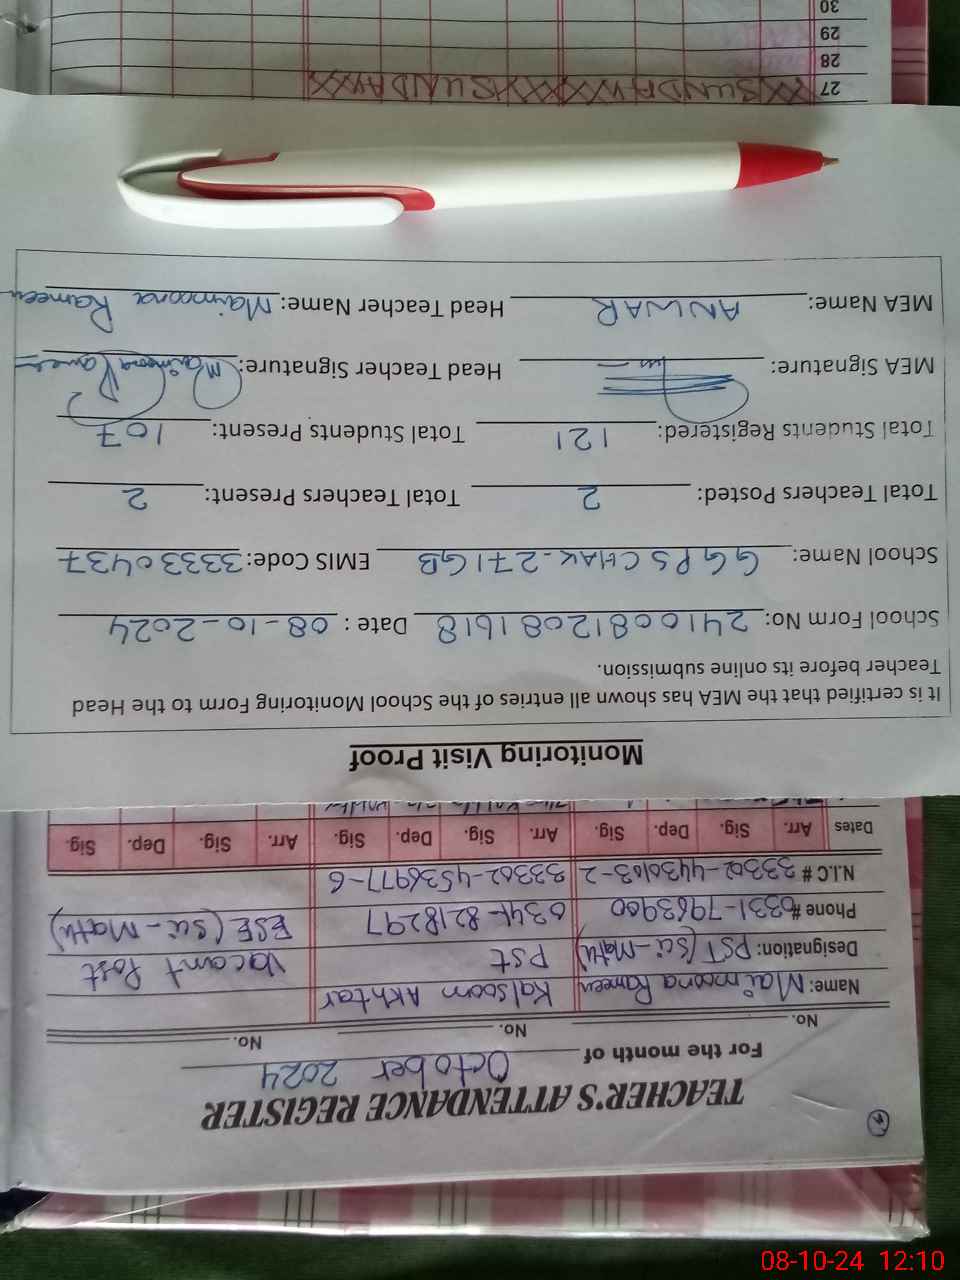 TEACHER'S ATTENDANCE REGISTER
For the month of October 2024
No. No. No.
Name: Maimoona Rameen Kalsoom Akhtar Vacant Post
Designation: PST (Sci-Math) PST ESE (Sci-Math)
Phone # 0331-7963900 0341-8218297
N.I.C # 33302-4430103-2 33302-4536977-6
Dates Arr. Sig. Dep. Sig. Arr. Sig. Dep. Sig. Arr. Sig. Dep. Sig.
Monitoring Visit Proof
It is certified that the MEA has shown all entries of the School Monitoring Form to the Head
Teacher before its online submission.
School Form No: 24100812081618 Date: 08-10-2024
School Name: GGPS CHAK-271GB EMIS Code: 33330437
Total Teachers Posted: 2 Total Teachers Present: 2
Total Students Registered: 121 Total Students Present: 107
MEA Signature: Head Teacher Signature: Maimoona Rameen
MEA Name: ANWAR Head Teacher Name: Maimoona Rameen
27 XX SUNDAY XXXX SUNDAY XX
28
29
30
08-10-24 12:10